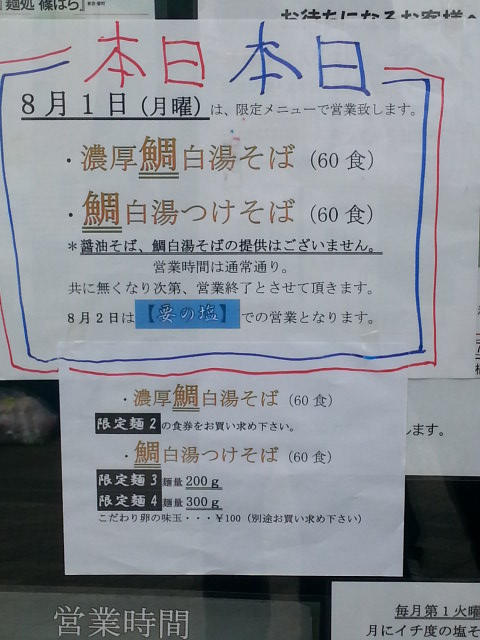 『麺処 篠はら』
お待ちになるお客様へ
本日 本日
8月1日(月曜)は、限定メニューで営業致します。
・濃厚鯛白湯そば(60食)
・鯛白湯つけそば(60食)
＊醤油そば、鯛白湯そばの提供はございません。
営業時間は通常通り。
共に無くなり次第、営業終了とさせて頂きます。
8月2日は【要の塩】での営業となります。
・濃厚鯛白湯そば(60食)
限定麺2の食券をお買い求め下さい。
・鯛白湯つけそば(60食)
限定麺3 麺量 200g
限定麺4 麺量 300g
こだわり卵の味玉・・・¥100(別途お買い求め下さい)
します。
営業時間
毎月第1火曜
月にイチ度の塩そ